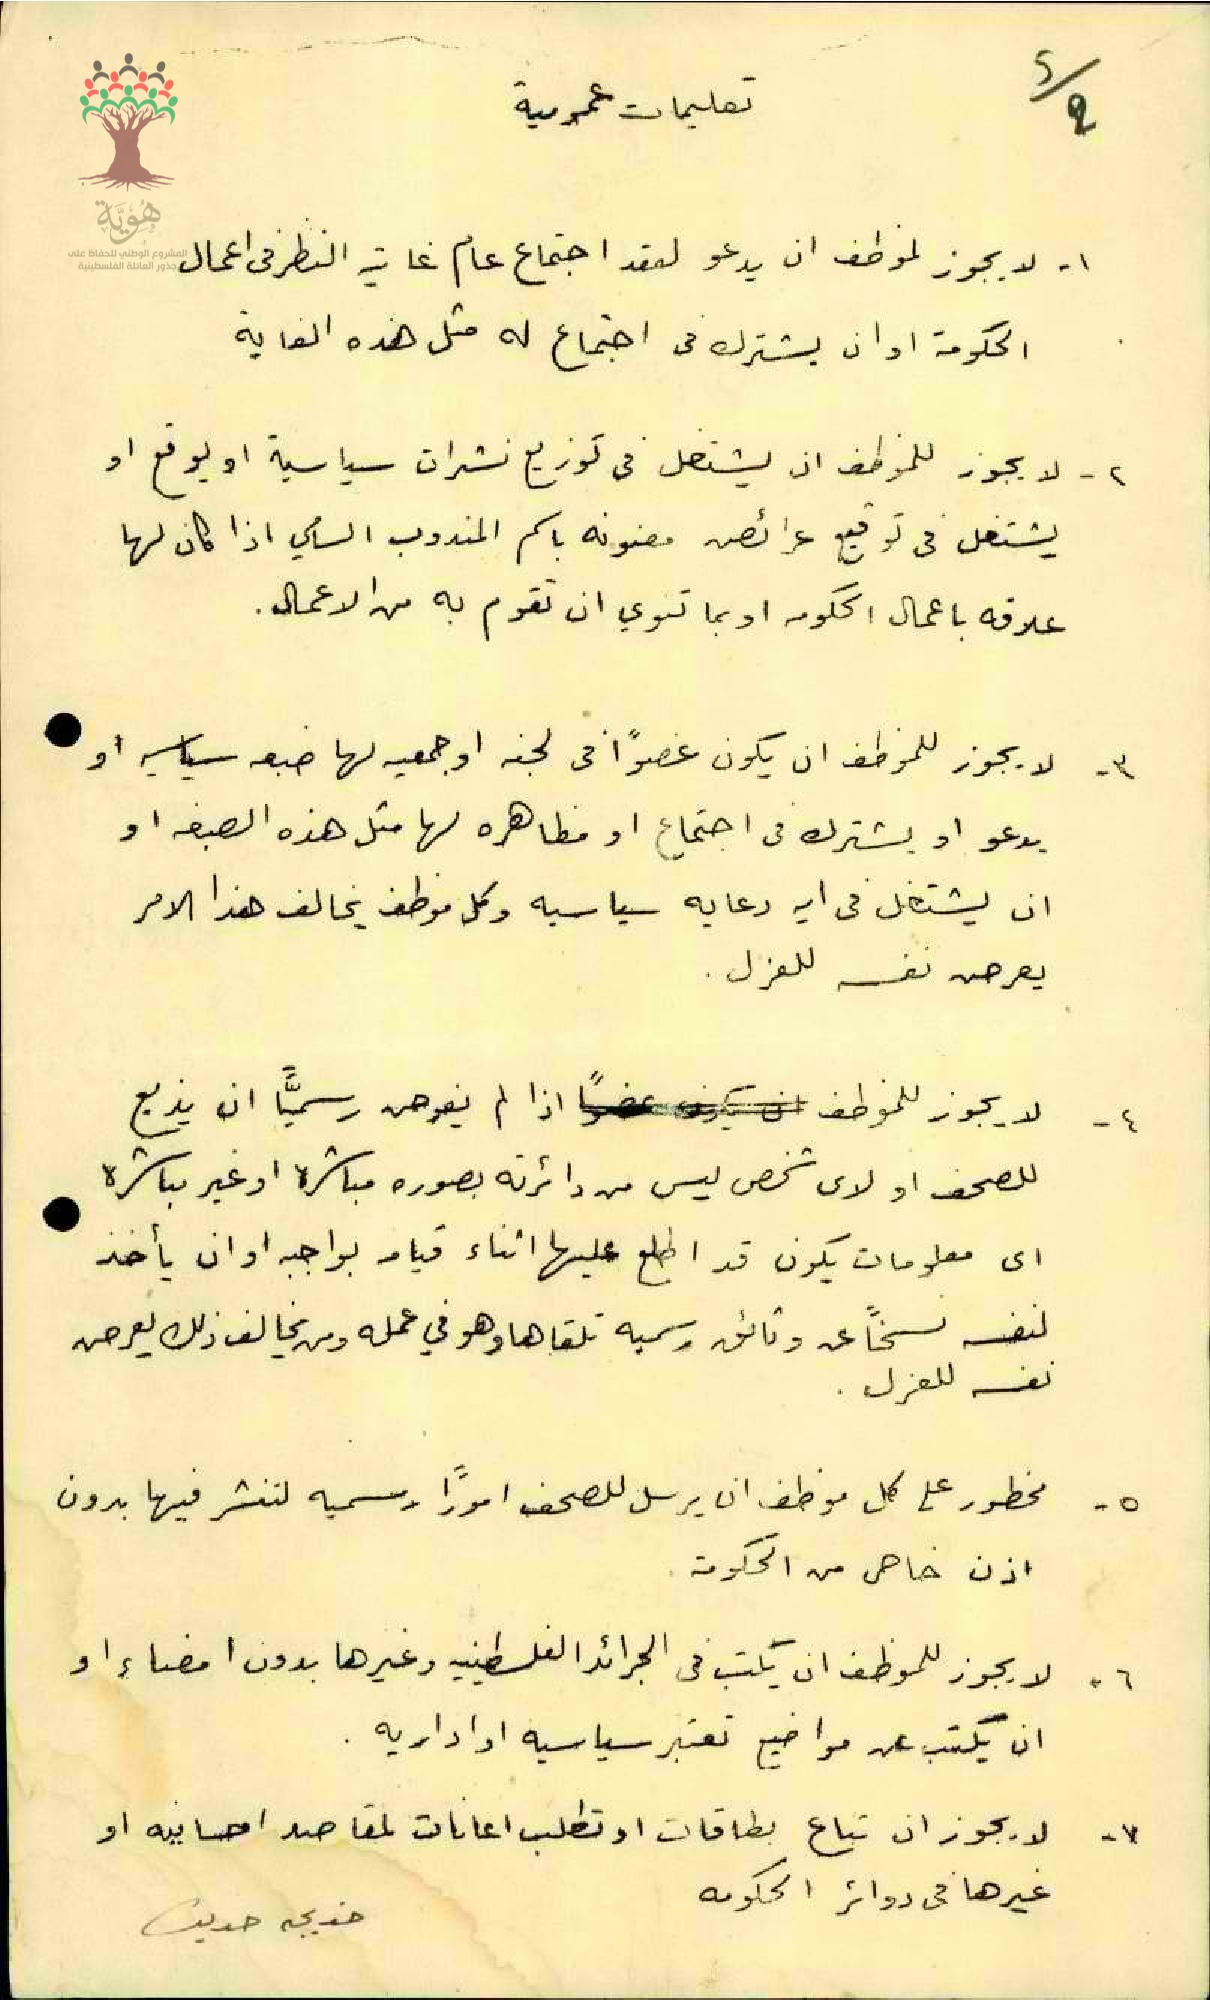 تعليمات عمومية
هُوِيَّة
المشروع الوطني للحفاظ على
جذور العائلة الفلسطينية
١- لا يجوز لموظف ان يدعو لعقد اجتماع عام غايته النظر فى اعمال
الحكومة او ان يشترك فى اجتماع له مثل هذه الغاية
٢- لا يجوز للموظف ان يشتغل فى توزيع نشرات سياسية او يوقع او
يشتغل فى توقيع عرائض معنونه باسم المندوب السامي اذا كان لها
علاقه باعمال الحكومه او بما تنوي ان تقوم به من الاعمال.
٣- لا يجوز للموظف ان يكون عضوًا فى لجنه او جمعيه لها صبغه سياسيه او
يدعو او يشترك فى اجتماع او مظاهره لها مثل هذه الصبغه او
ان يشتغل فى ايه دعايه سياسيه وكل موظف يخالف هذا الامر
يعرض نفسه للعزل.
٤- لا يجوز للموظف ان يكون عضوًا اذا لم يفوض رسميًّا ان يذيع
للصحف او لاى شخص ليس من دائرته بصوره مباشرة او غير مباشرة
اى معلومات يكون قد اطلع عليها اثناء قيامه بواجبه او ان يأخذ
لنفسه نسخاً عن وثائق رسميه تلقاها وهو في عمله ومن يخالف ذلك يعرض
نفسه للعزل.
٥- محظور على كل موظف ان يرسل للصحف امورًا رسميه لتنشر فيها بدون
اذن خاص من الحكومة.
٦- لا يجوز للموظف ان يكتب فى الجرائد الفلسطينيه وغيرها بدون امضاء او
ان يكتب عن مواضيع تعتبر سياسيه او اداريه.
٧- لا يجوز ان تباع بطاقات او تطلب اعانات لمقاصد احسانيه او
غيرها فى دوائر الحكومه
خديجه